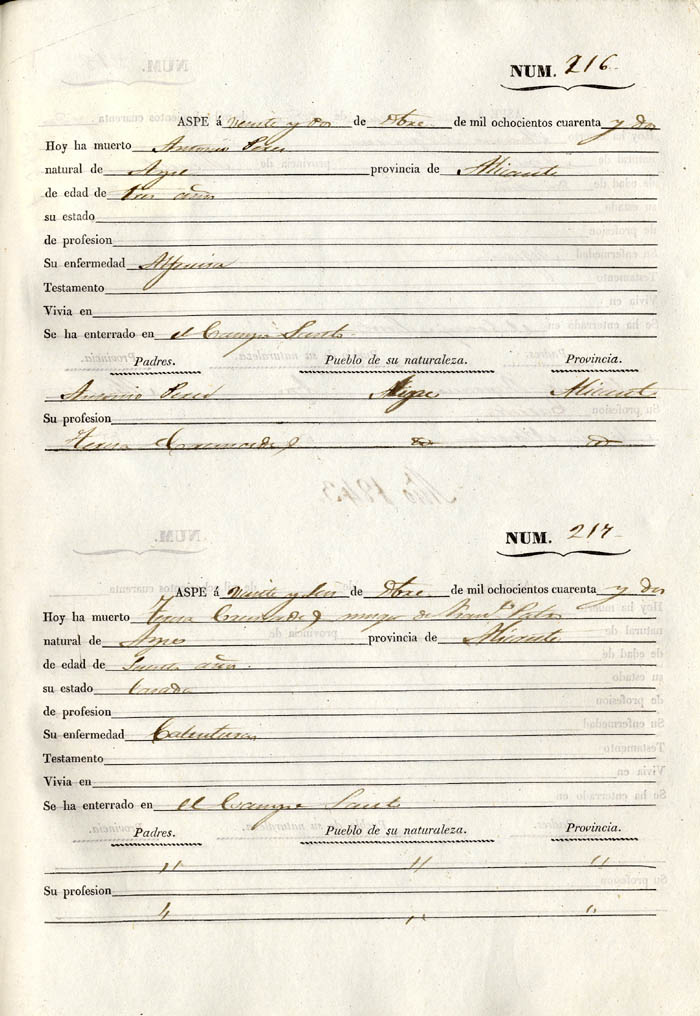 NUM. 216
ASPE á veinte y dos de Dbre de mil ochocientos cuarenta y dos
Hoy ha muerto Antonio Peres
natural de Aspe provincia de Alicante
de edad de tres años
su estado
de profesion
Su enfermedad
Testamento
Vivia en
Se ha enterrado en el Campo Santo
Padres. Pueblo de su naturaleza. Provincia.
Antonio Peres Aspe Alicante
Su profesion
Teresa
NUM. 217
ASPE á veinte y seis de Dbre de mil ochocientos cuarenta y dos
Hoy ha muerto Teresa muger de
natural de Aspe provincia de Alicante
de edad de años
su estado Casada
de profesion
Su enfermedad Calenturas
Testamento
Vivia en
Se ha enterrado en el Campo Santo
Padres. Pueblo de su naturaleza. Provincia.
" " "
Su profesion
" " "